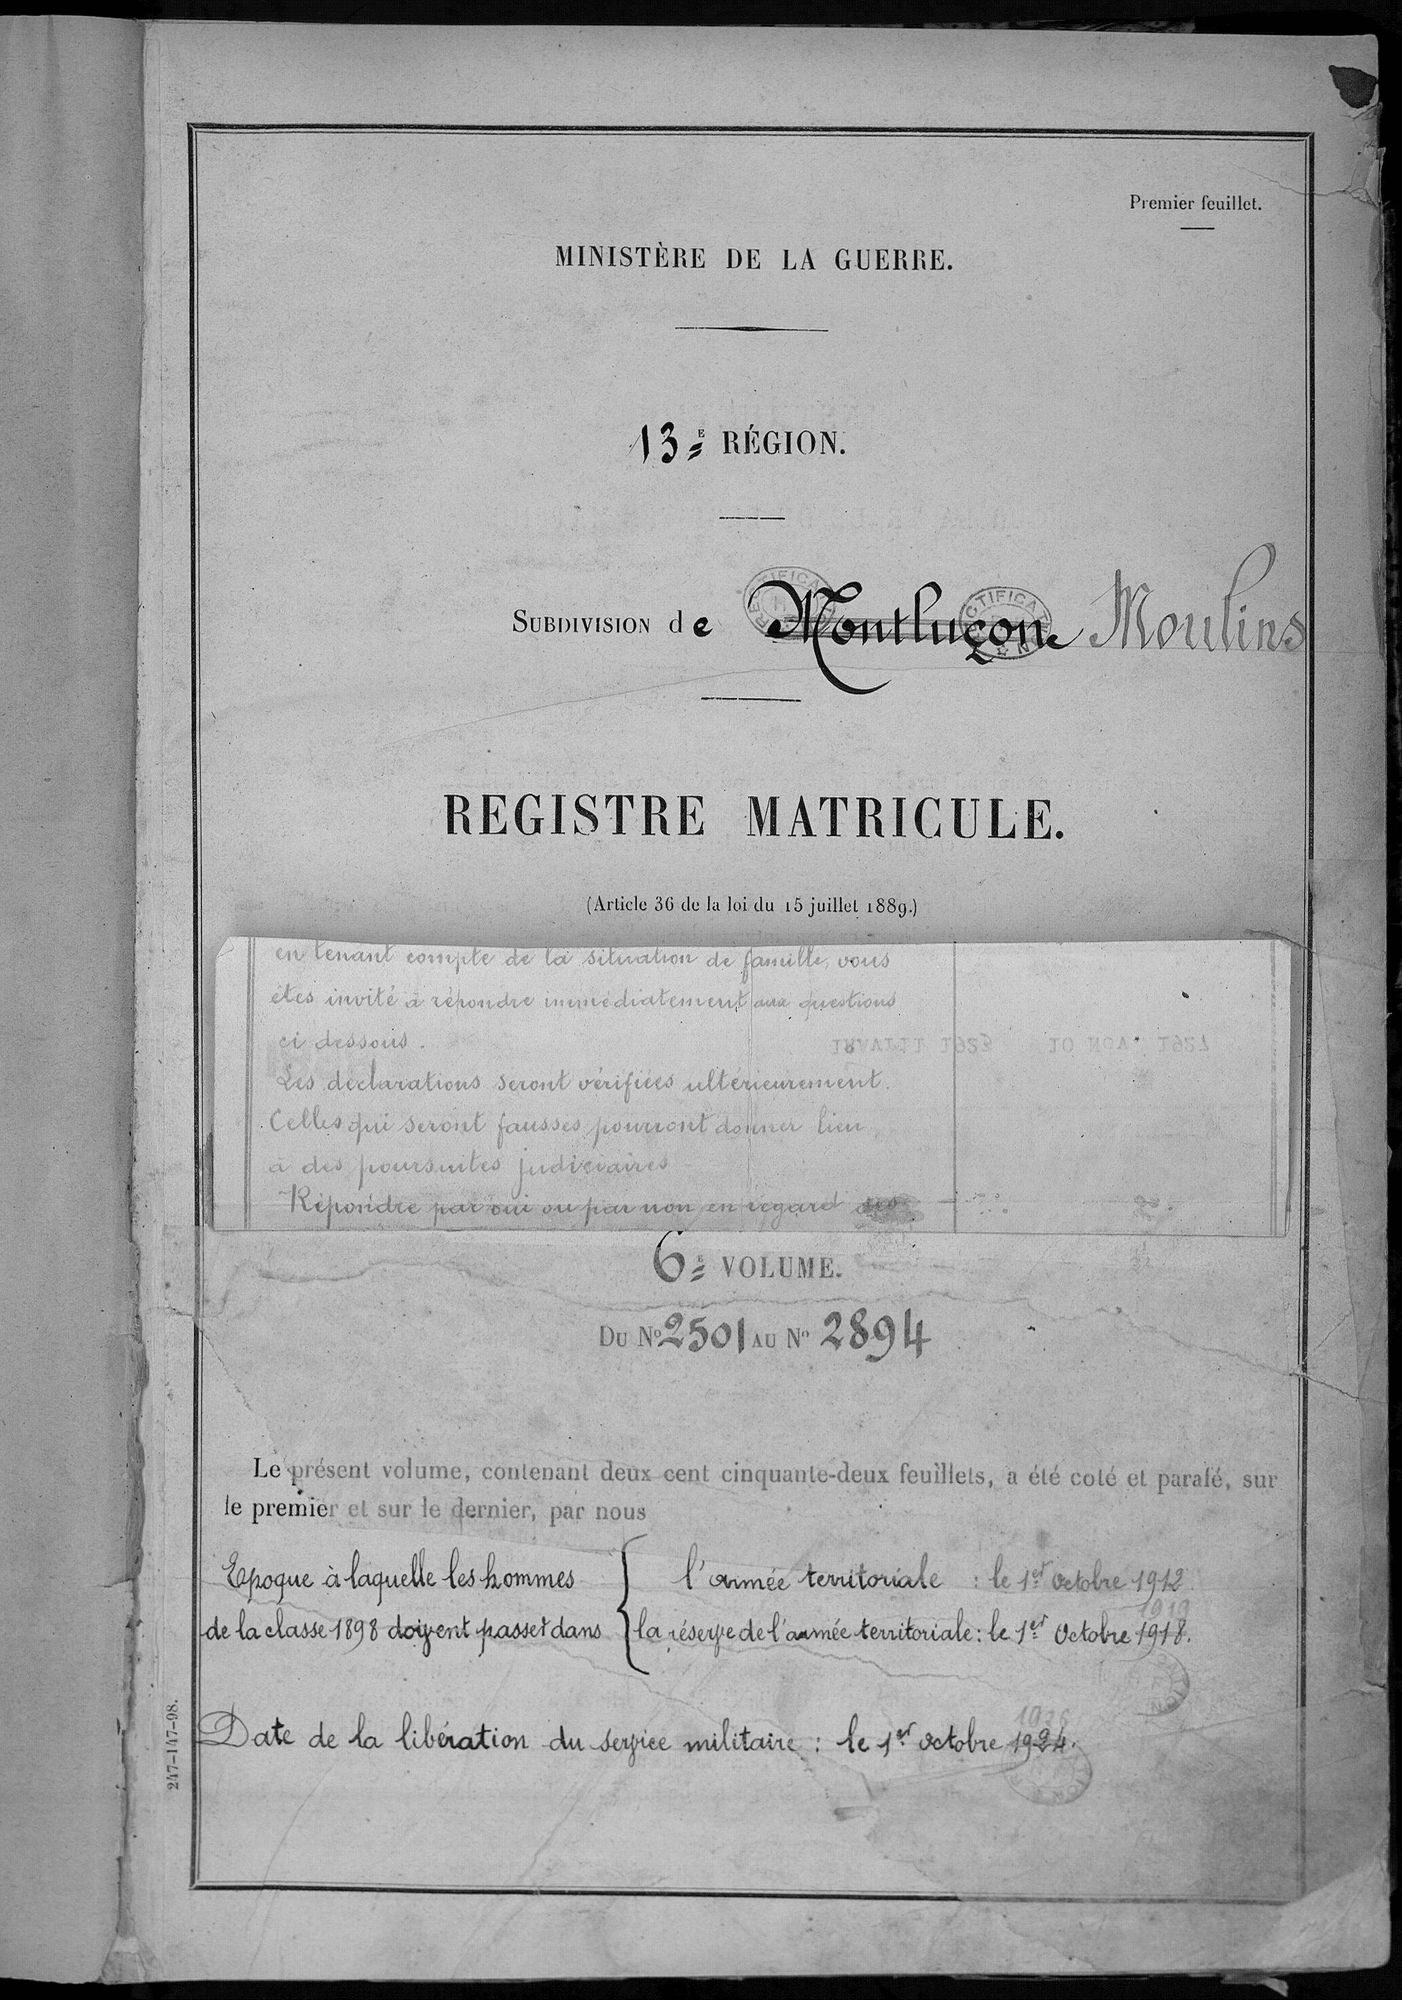 Premier feuillet.
MINISTÈRE DE LA GUERRE.
13E RÉGION.
SUBDIVISION de Montluçon Moulins
REGISTRE MATRICULE.
(Article 36 de la loi du 15 juillet 1889.)
en tenant compte de la situation de famille, vous
êtes invité à répondre immédiatement aux questions
ci dessous.
Les déclarations seront vérifiées ultérieurement.
Celles qui seront fausses pourront donner lieu
à des poursuites judiciaires
Répondre par oui ou par non en regard des
6E VOLUME.
DU No 2501 AU No 2894
Le présent volume, contenant deux cent cinquante-deux feuillets, a été coté et parafé, sur
le premier et sur le dernier, par nous
Epoque à laquelle les hommes { l'armée territoriale : le 1er Octobre 1912
1919
de la classe 1898 doivent passer dans la réserve de l'armée territoriale : le 1er Octobre 1918.
Date de la libération du service militaire : le 1er Octobre 1924.
247-147-98.